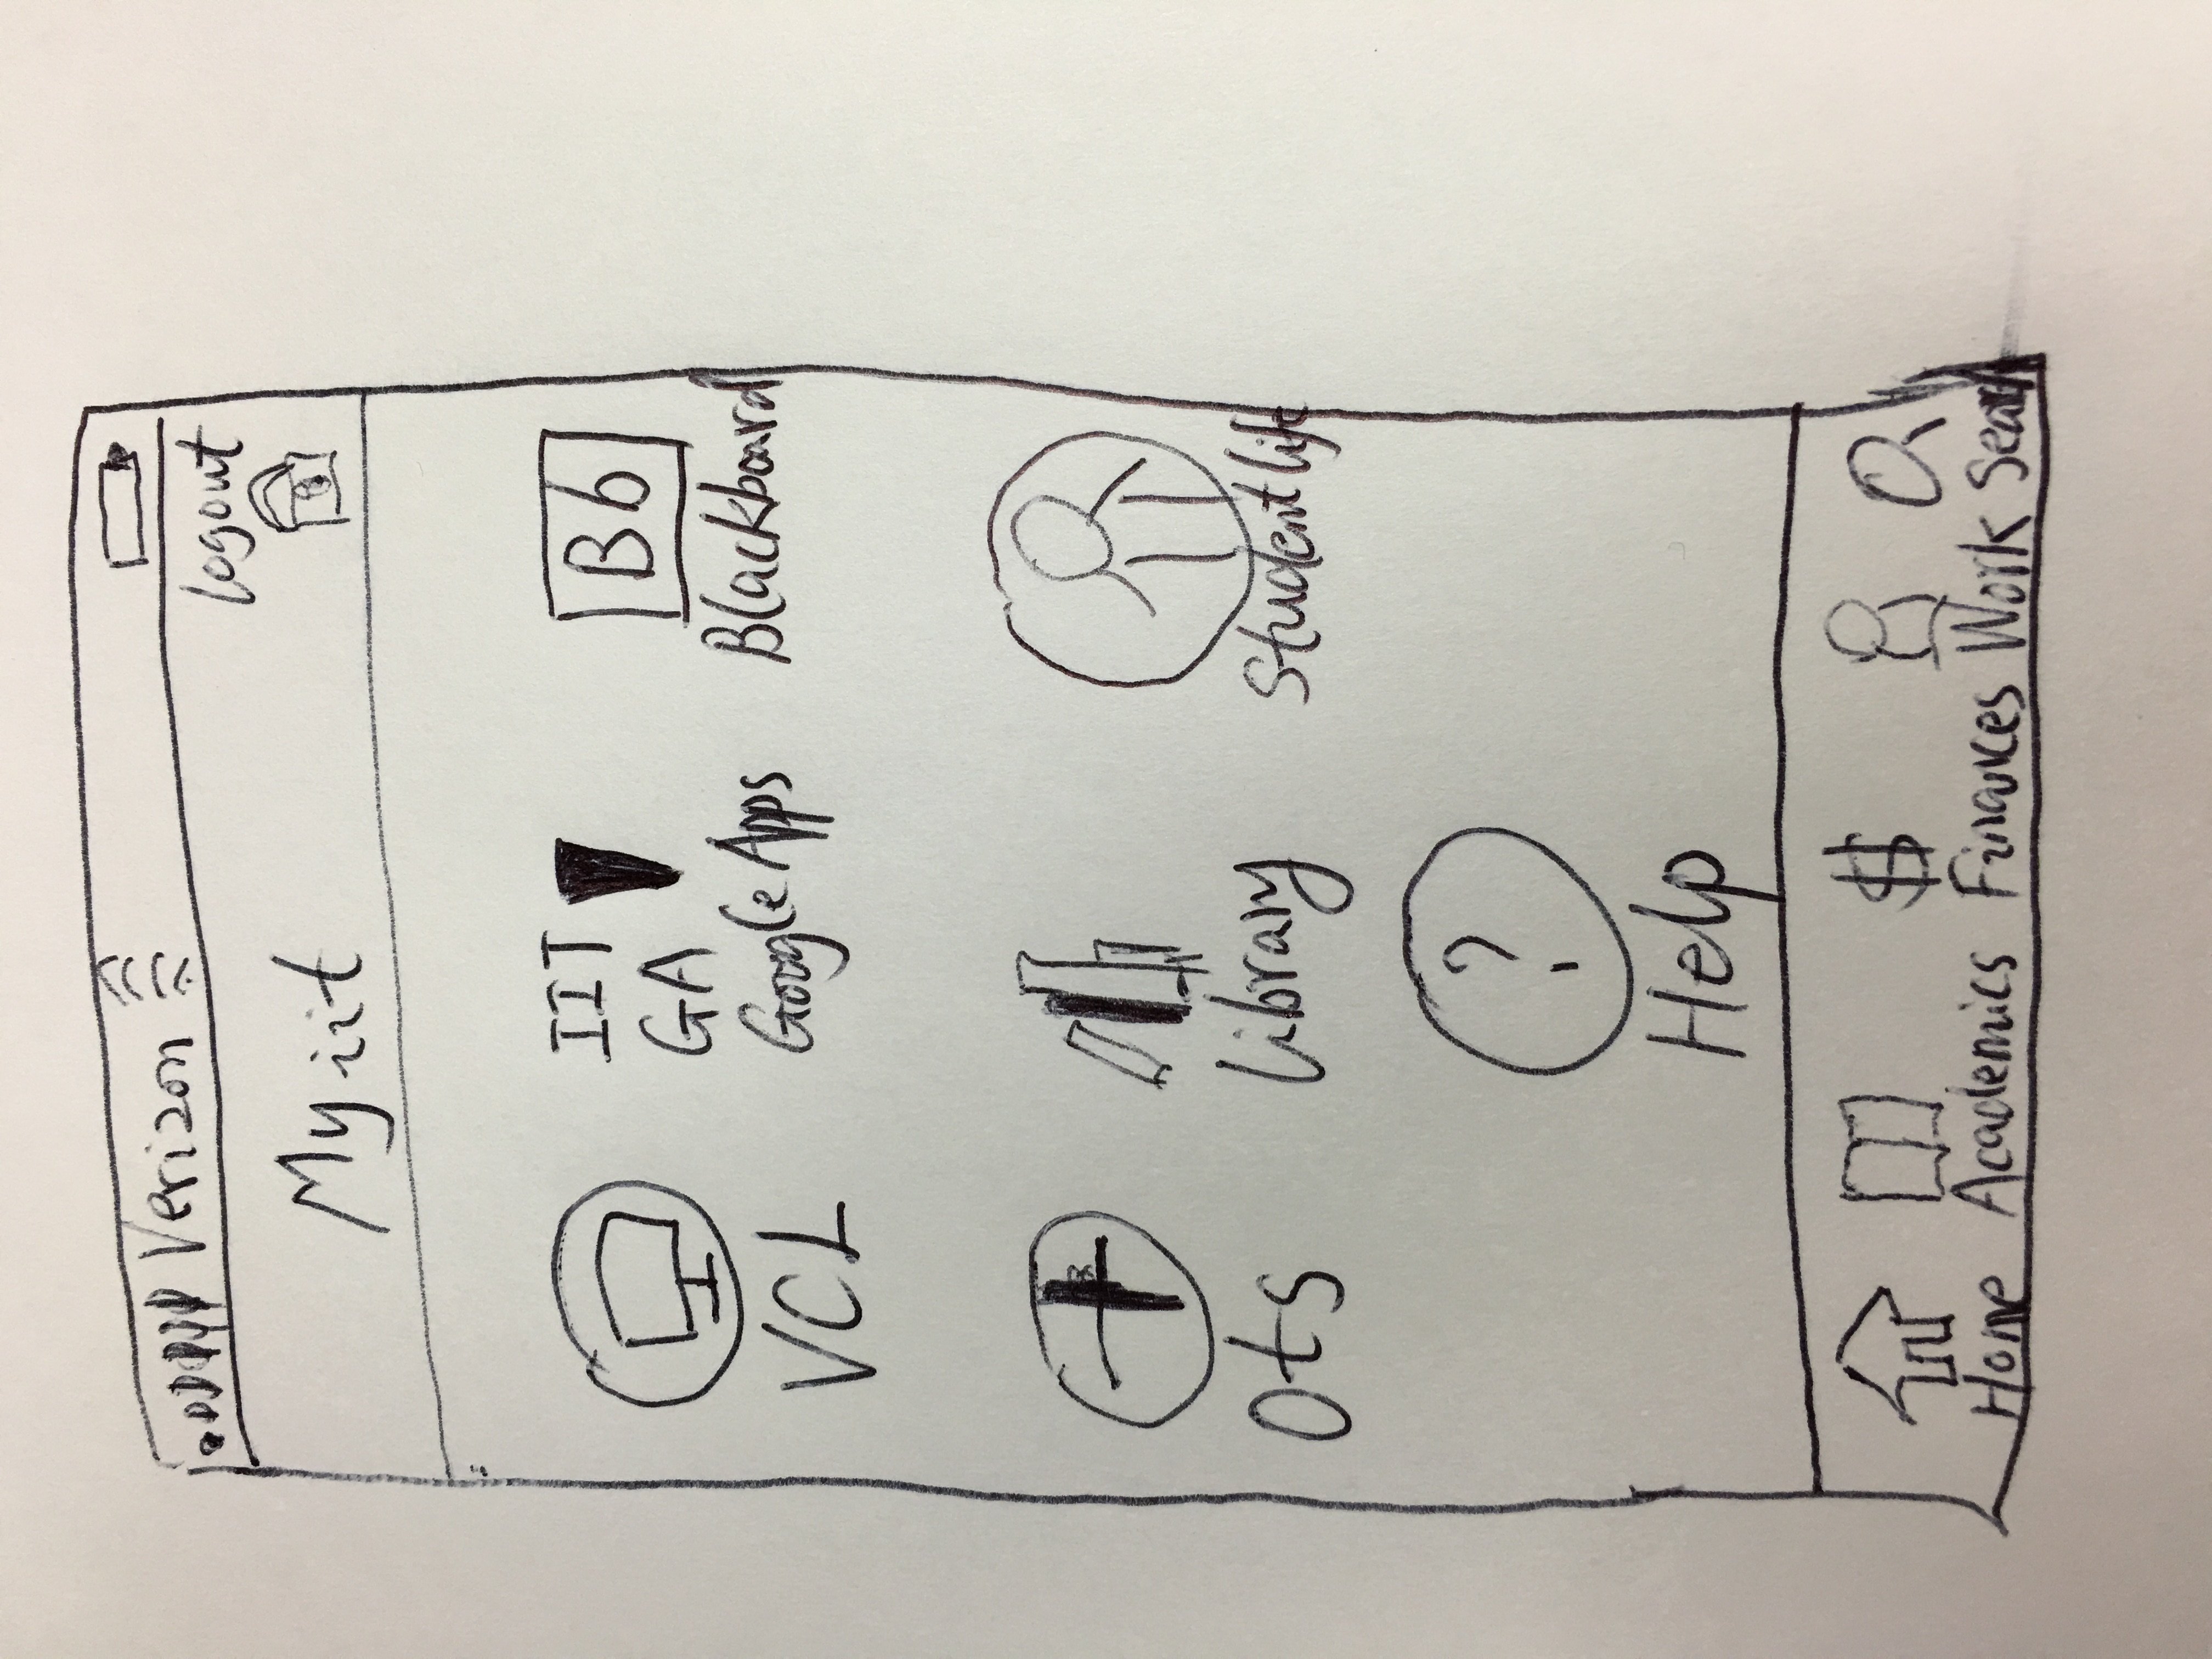 Verizon
logout
Myiit
IIT
GA
Bb
VCL
Google Apps
Blackboard
Ots
Library
Student life
?
Help
$
Home Academics Finances Work Search